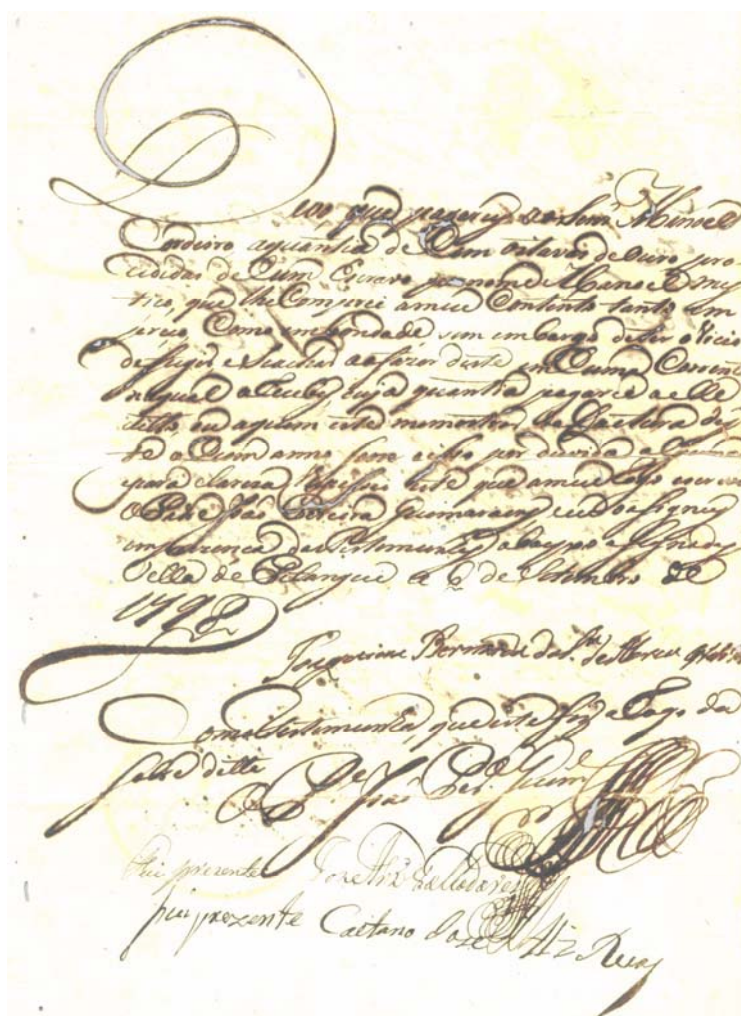 que pagarey ao Senr. Manoel
Cordeiro aquantia de Cem oitavas de Ouro pro-
cedidas de hum Escravo por nome Manoel mys
tico, que lhe Comprei ameu Contento tanto em
preço, Como em bondade sem embargo de ser o Vicio
de fugir e se achar ao fazer deste em huma Corrente
na qual o recebi, cuja quantia pagarei a elle
ditto ou aquem este me mostrar da factura des
te a hum anno sem a isso por duvida alguma
e para clareza este que ameu rogo escreveo
o Pede João Pereira Guimaraens e eu o asigney
em prezença das Testemunhas abaxo asignadas
Villa de Pitangui a 6 de Setembro de
179
Bernarda da S.ª de
Como testemunha que este fiz a Rogo da
sobre ditta
O Pe João Per.ª Guim.
Fui prezente Jose Valladares
fui prezente Caetano Jose